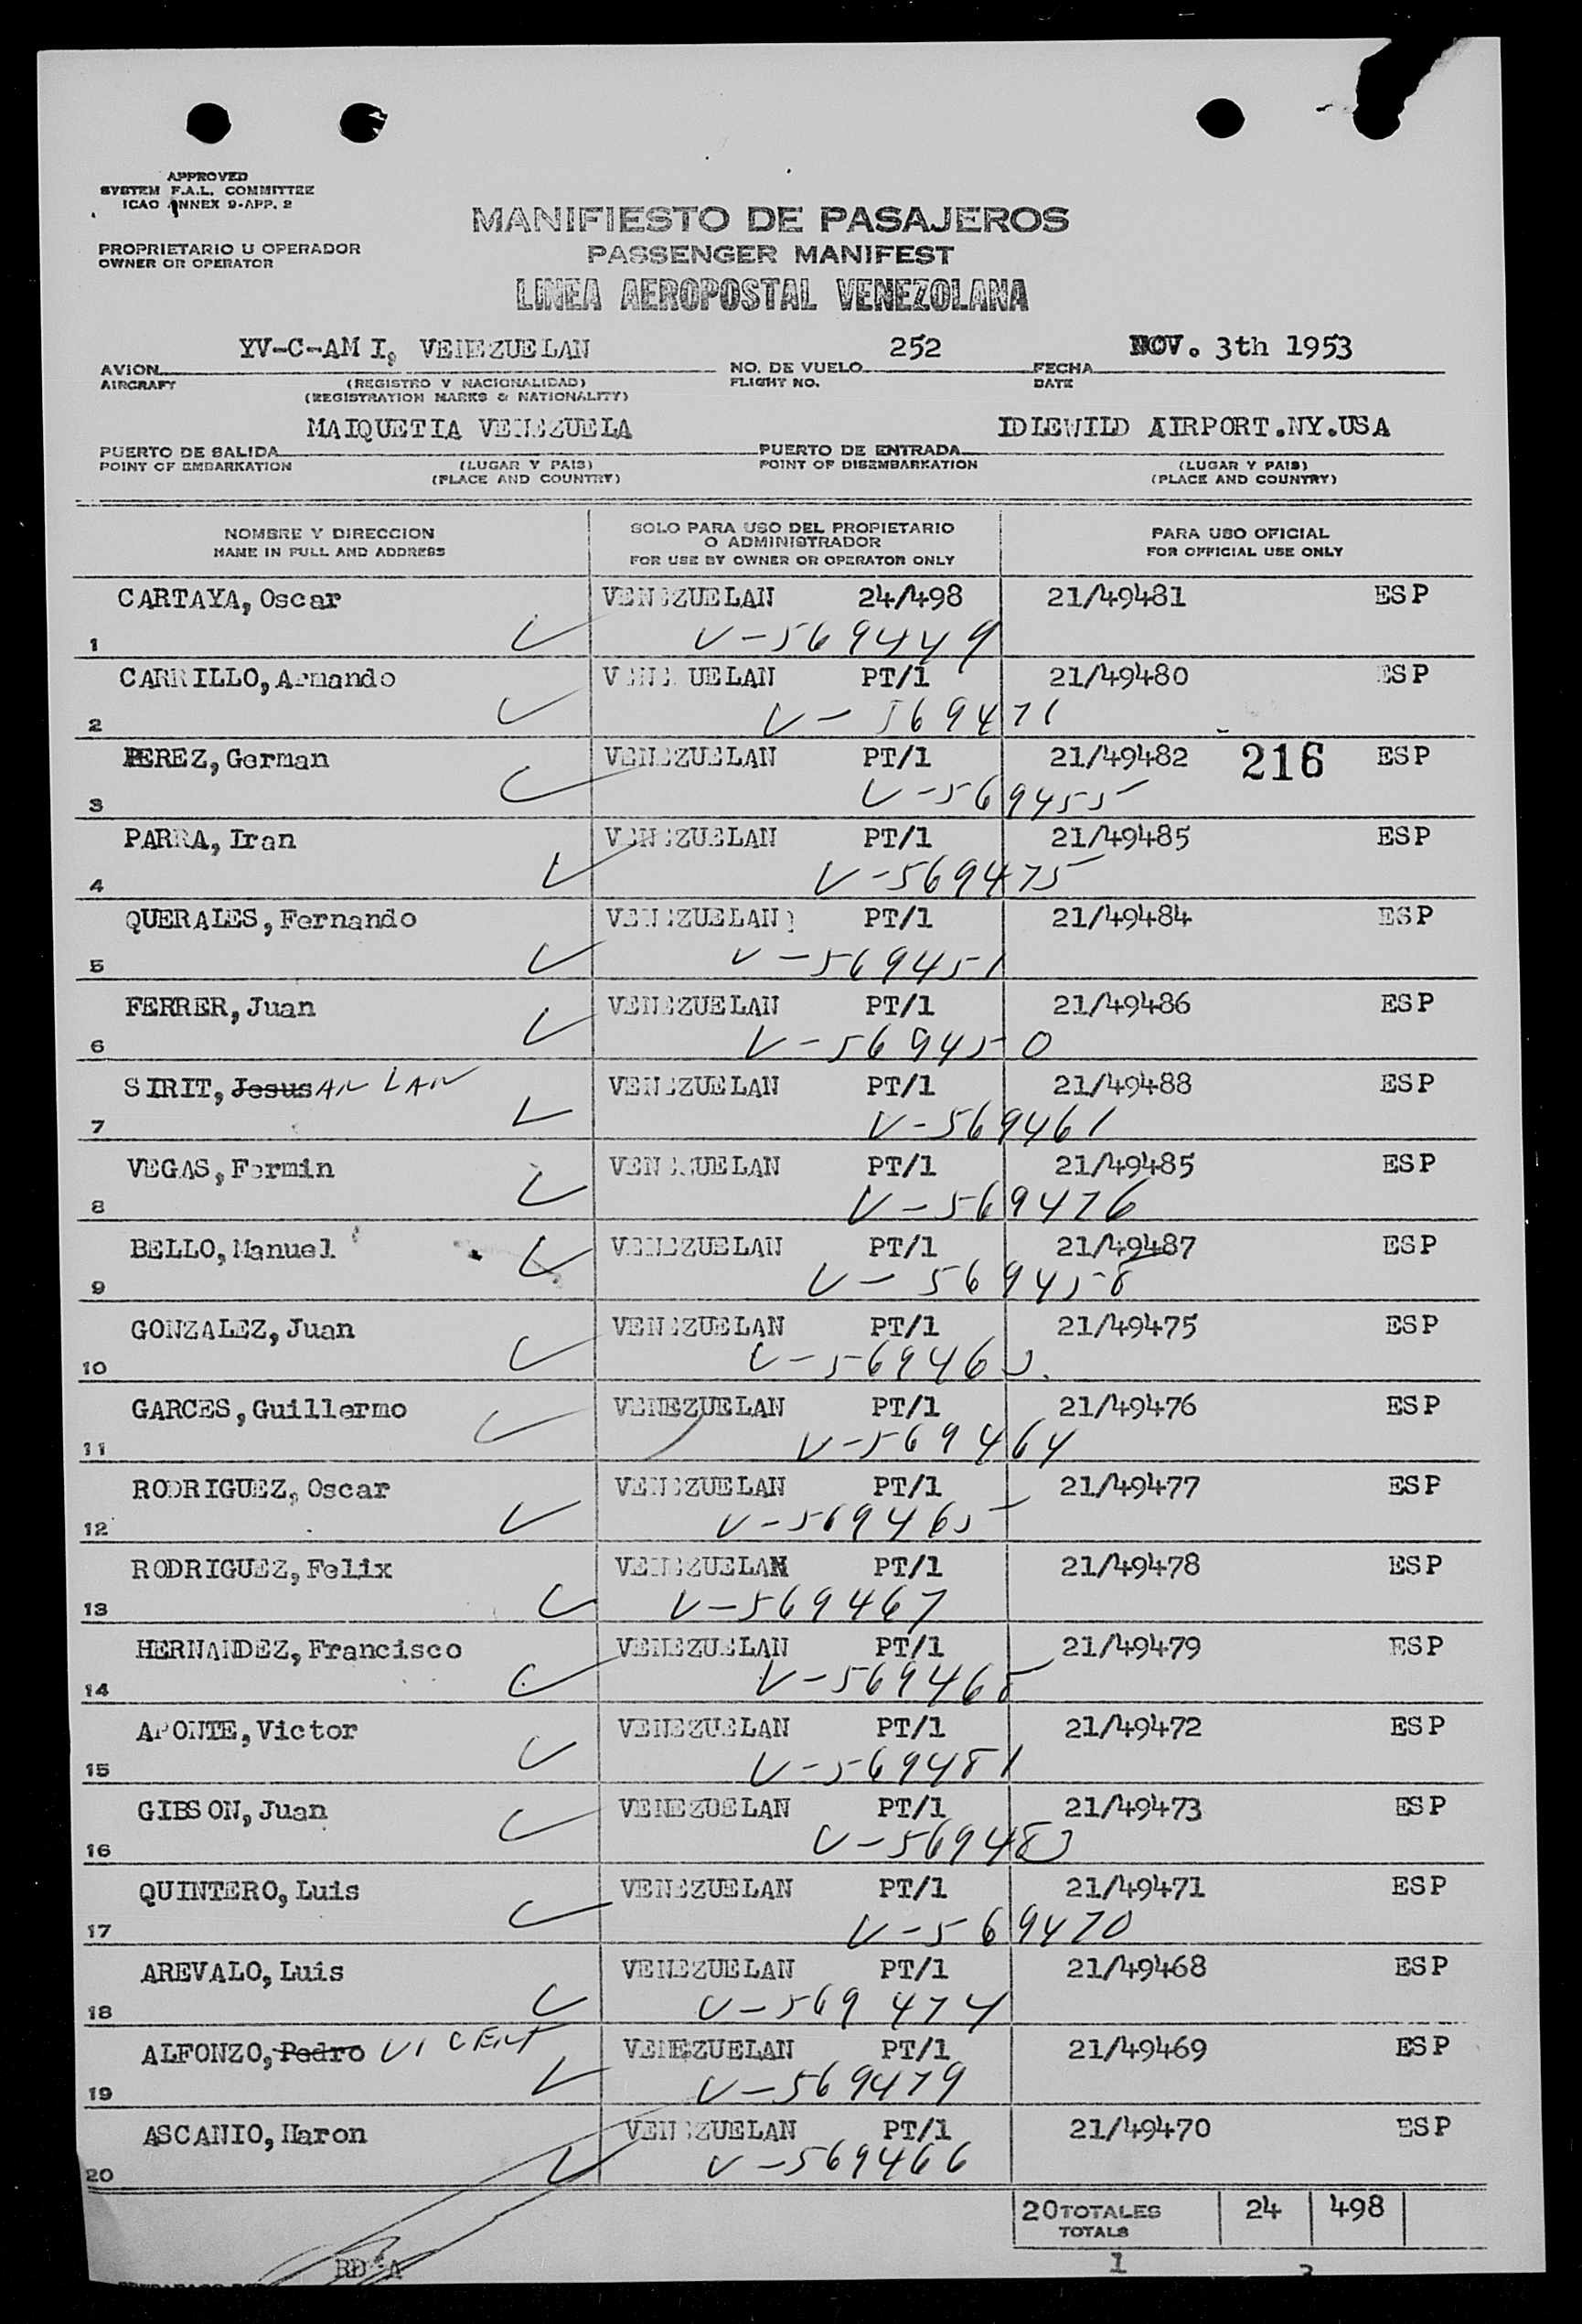 APPROVED
SYSTEM F.A.L. COMMITTEE
ICAO ANNEX 9-APP. 2
MANIFIESTO DE PASAJEROS
PROPRIETARIO U OPERADOR
OWNER OR OPERATOR
PASSENGER MANIFEST
LINEA AEROPOSTAL VENEZOLANA
YV-C-AM I, VENEZUELAN 252 NOV. 3th 1953
AVION NO. DE VUELO FECHA
AIRCRAFT (REGISTRO Y NACIONALIDAD) FLIGHT NO. DATE
(REGISTRATION MARKS & NATIONALITY)
MAIQUETIA VENEZUELA IDLEWILD AIRPORT.NY.USA
PUERTO DE SALIDA PUERTO DE ENTRADA
POINT OF EMBARKATION (LUGAR Y PAIS) POINT OF DISEMBARKATION (LUGAR Y PAIS)
(PLACE AND COUNTRY) (PLACE AND COUNTRY)
NOMBRE Y DIRECCION SOLO PARA USO DEL PROPIETARIO PARA USO OFICIAL
O ADMINISTRADOR
NAME IN FULL AND ADDRESS FOR USE BY OWNER OR OPERATOR ONLY FOR OFFICIAL USE ONLY
CARTAYA, Oscar VENEZUELAN 24/498 21/49481 ESP
1 V-569449
CARRILLO, Armando VENEZUELAN PT/1 21/49480 ESP
2 V-569471
PEREZ, German VENEZUELAN PT/1 21/49482 216 ESP
3 V-569455
PARRA, Iran VENEZUELAN PT/1 21/49485 ESP
4 V-569475
QUERALES, Fernando VENEZUELAN PT/1 21/49484 ESP
5 V-569451
FERRER, Juan VENEZUELAN PT/1 21/49486 ESP
6 V-569450
SIRIT, Jesus AN LAN VENEZUELAN PT/1 21/49488 ESP
7 V-569461
VEGAS, Fermin VENEZUELAN PT/1 21/49485 ESP
8 V-569476
BELLO, Manuel VENEZUELAN PT/1 21/49487 ESP
9 V-569458
GONZALEZ, Juan VENEZUELAN PT/1 21/49475 ESP
10
GARCES, Guillermo VENEZUELAN PT/1 21/49476 ESP
11 V-569464
RODRIGUEZ, Oscar VENEZUELAN PT/1 21/49477 ESP
12 V-569465
RODRIGUEZ, Felix VENEZUELAN PT/1 21/49478 ESP
13 V-569467
HERNANDEZ, Francisco VENEZUELAN PT/1 21/49479 ESP
14
APONTE, Victor VENEZUELAN PT/1 21/49472 ESP
15 V-569481
GIBSON, Juan VENEZUELAN PT/1 21/49473 ESP
16 V-569483
QUINTERO, Luis VENEZUELAN PT/1 21/49471 ESP
17 V-569470
AREVALO, Luis VENEZUELAN PT/1 21/49468 ESP
18 V-569474
ALFONZO, Pedro VICENT VENEZUELAN PT/1 21/49469 ESP
19 V-569479
ASCANIO, Haron VENEZUELAN PT/1 21/49470 ESP
20 V-569466
20 TOTALES 24 498
TOTALS
1